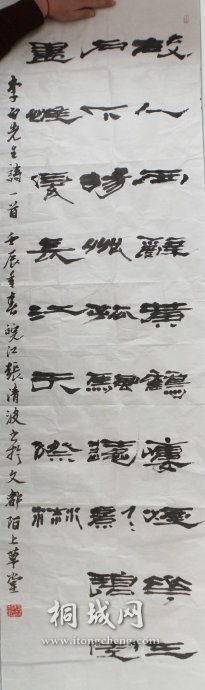 故人西辭黃鶴樓煙華三
月下揚州孤颿遠影碧空
盡唯見長江天際流
李白先生詩一首 壬辰年春皖江張清波書於文都陌上草堂
桐城网
www.itongcheng.com